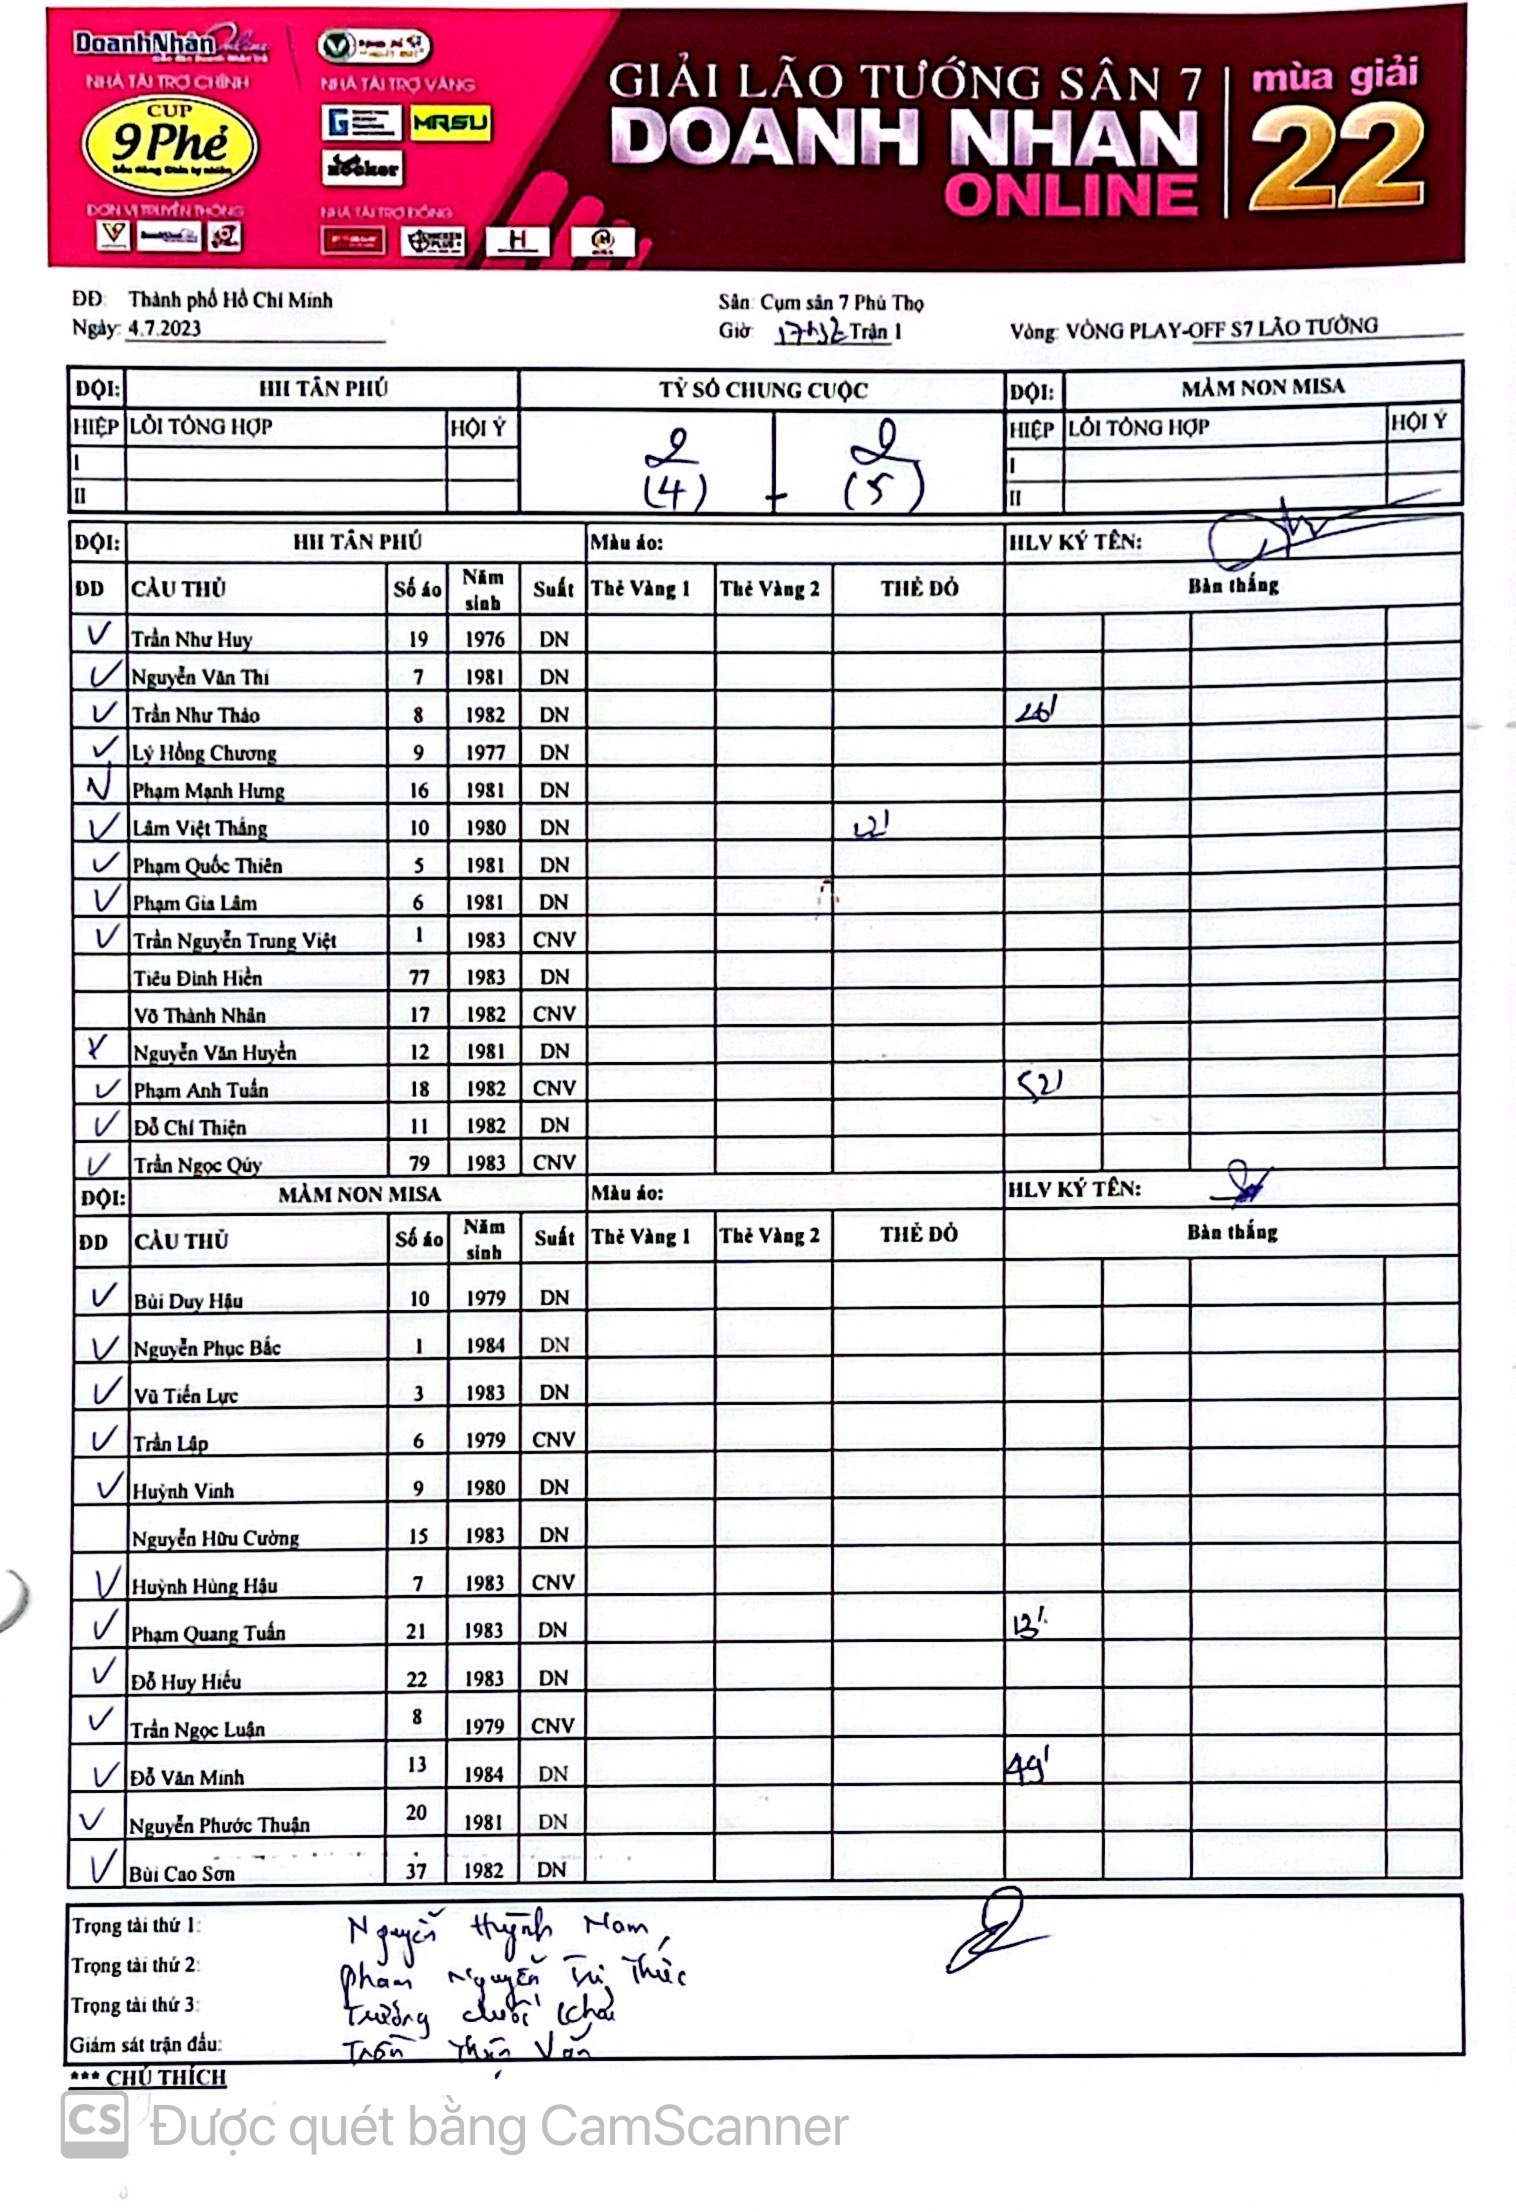 DoanhNhân Online
NHÀ TÀI TRỢ CHÍNH
NHÀ TÀI TRỢ VÀNG
CUP
9 Phẻ
MRSU
GIẢI LÃO TƯỚNG SÂN 7
DOANH NHÂN
ONLINE
mùa giải
22
ĐƠN VỊ TRUYỀN THÔNG
NHÀ TÀI TRỢ ĐỒNG
CHICKEN PLUS
H
ĐĐ: Thành phố Hồ Chí Minh Sân: Cụm sân 7 Phú Thọ
Ngày: 4.7.2023 Giờ Trận 1 Vòng: VÒNG PLAY-OFF S7 LÃO TƯỚNG
ĐỘI: HH TÂN PHÚ TỶ SỐ CHUNG CUỘC ĐỘI: MẦM NON MISA
HIỆP LỖI TỔNG HỢP HỘI Ý 2 - 2 HIỆP LỖI TỔNG HỢP HỘI Ý
I (4) (5) I
II II
ĐỘI: HH TÂN PHÚ Màu áo: HLV KÝ TÊN:
ĐD CẦU THỦ Số áo Năm sinh Suất Thẻ Vàng 1 Thẻ Vàng 2 THẺ ĐỎ Bàn thắng
Trần Như Huy 19 1976 DN
Nguyễn Văn Thi 7 1981 DN
Trần Như Thảo 8 1982 DN
Lý Hồng Chương 9 1977 DN
Phạm Mạnh Hưng 16 1981 DN
Lâm Việt Thắng 10 1980 DN
Phạm Quốc Thiên 5 1981 DN
Phạm Gia Lâm 6 1981 DN
Trần Nguyễn Trung Việt 1 1983 CNV
Tiêu Đình Hiền 77 1983 DN
Võ Thành Nhân 17 1982 CNV
Nguyễn Văn Huyền 12 1981 DN
Phạm Anh Tuấn 18 1982 CNV 52'
Đỗ Chí Thiện 11 1982 DN
Trần Ngọc Qúy 79 1983 CNV
ĐỘI: MẦM NON MISA Màu áo: HLV KÝ TÊN:
ĐD CẦU THỦ Số áo Năm sinh Suất Thẻ Vàng 1 Thẻ Vàng 2 THẺ ĐỎ Bàn thắng
Bùi Duy Hậu 10 1979 DN
Nguyễn Phục Bắc 1 1984 DN
Vũ Tiến Lực 3 1983 DN
Trần Lập 6 1979 CNV
Huỳnh Vinh 9 1980 DN
Nguyễn Hữu Cường 15 1983 DN
Huỳnh Hùng Hậu 7 1983 CNV
Phạm Quang Tuấn 21 1983 DN 13'
Đỗ Huy Hiếu 22 1983 DN
Trần Ngọc Luận 8 1979 CNV
Đỗ Văn Minh 13 1984 DN 49'
Nguyễn Phước Thuận 20 1981 DN
Bùi Cao Sơn 37 1982 DN
Trọng tài thứ 1: Nguyễn Huỳnh Nam
Trọng tài thứ 2: Phạm Nguyễn Tri Thức
Trọng tài thứ 3: Trương
Giám sát trận đấu: Trần Văn
*** CHÚ THÍCH
CS Được quét bằng CamScanner